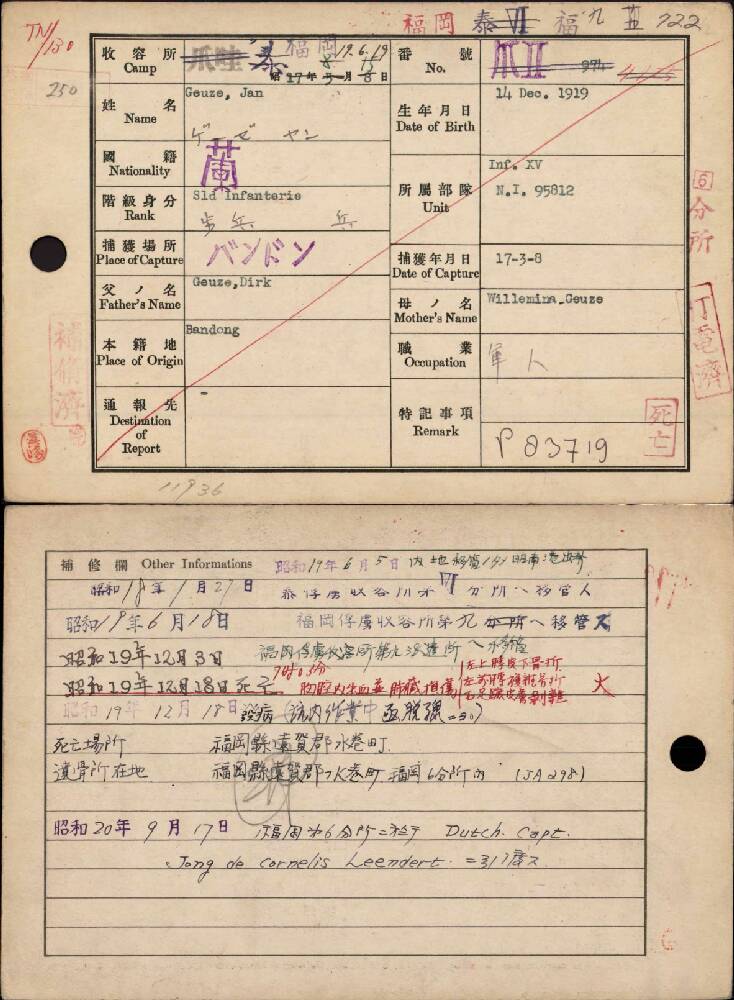 TN/130
福岡 泰 VI 福 九 五 722
250
収容所 Camp
爪哇 泰 福岡 19.6.19
8 15
昭 17年 3月 8日
番號 No.
爪II 974
姓名 Name
Geuze, Jan
ゲーゼ ヤン
生年月日 Date of Birth
14 Dec. 1919
國籍 Nationality
蘭
所属部隊 Unit
Inf. XV
N.I. 95812
階級身分 Rank
Sld Infanterie
歩兵 兵
捕獲場所 Place of Capture
バンドン
捕獲年月日 Date of Capture
17-3-8
父ノ名 Father's Name
Geuze,Dirk
母ノ名 Mother's Name
Willemina.Geuze
本籍地 Place of Origin
Bandong
職業 Occupation
軍人
通報先 Destination of Report
-
特記事項 Remark
P 83719
死亡
6 分所
丁電済
補修済
11936
補修欄 Other Informations
昭和19年6月5日 内地移管
昭和18年1月27日 泰俘虜収容所第VI分所ヘ移管ス
昭和19年6月18日 福岡俘虜収容所第九分所ヘ移管ス
昭和19年12月3日 福岡俘虜収容所第九派遣所ヘ移管
昭和19年12月18日死亡 7時05分 胸腔内出血並肺臓損傷
昭和19年12月18日
死亡場所 福岡縣遠賀郡水巻町
遺骨所在地 福岡縣遠賀郡水巻町 福岡6分所内 (JA298)
昭和20年9月17日 福岡第6分所ニ於テ Dutch. Capt.
Jong de Cornelis Leendert. ニ引渡ス